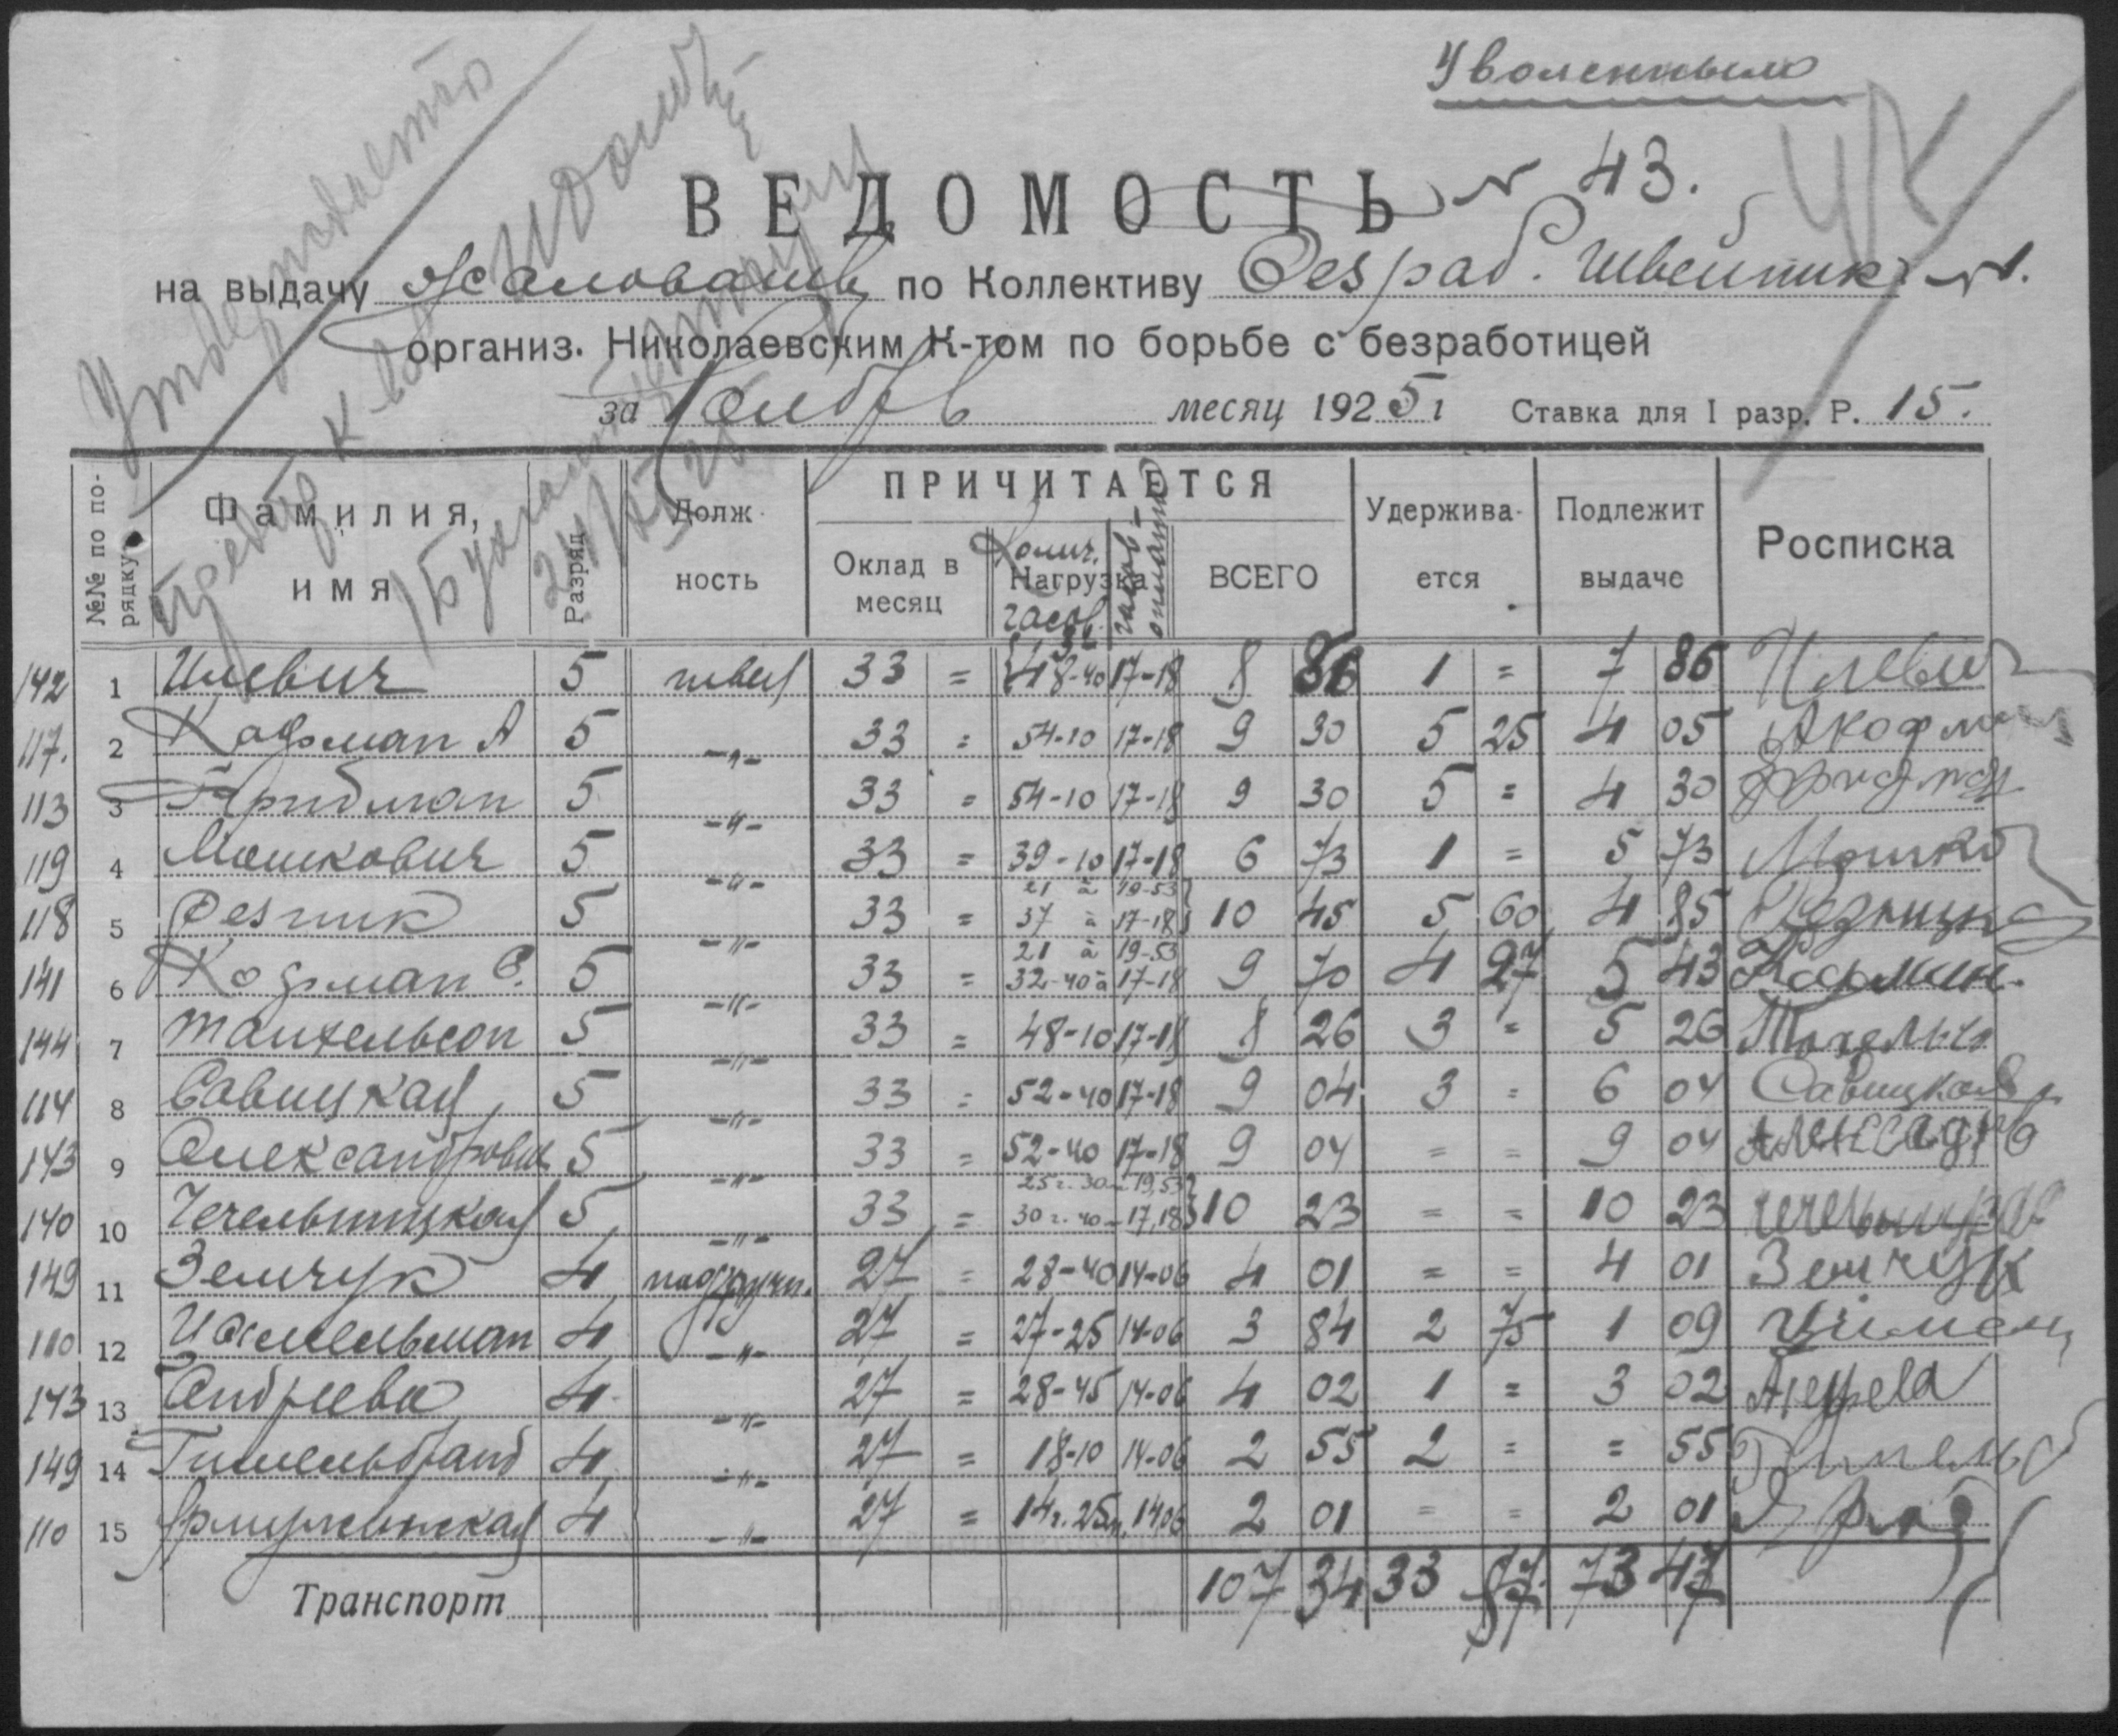 Уволенным
ВЕДОМОСТЬ № 43.
на выдачу жалованья по Коллективу Безраб. Швейник № 1.
организ. Николаевским К-том по борьбе с безработицей
за Ноябрь месяц 1925 г Ставка для I разр. Р. 15.
Утверждается
УК
№№ по по-рядку Фамилия, имя Разряд Долж-ность ПРИЧИТАЕТСЯ Удержива-ется Подлежит выдаче Росписка
Оклад в месяц Колич. Нагрузка часов ВСЕГО
142 1 Илевич 5 швея 33 = 17-18 8 86 1 = 7 86 Илевич
117. 2 Кофман А 5 -"- 33 = 54-10 17-18 9 30 5 25 4 05 АКофман
113 3 Фридман 5 -"- 33 = 54-10 17-18 9 30 5 = 4 30 Фридман
119 4 Мошкович 5 -"- 33 = 39-10 17-18 6 73 1 = 5 73 Мошков
118 5 Резник 5 -"- 33 = 21 à 19-53 37 à 17-18 10 45 5 60 4 85
141 6 Кофман С. 5 -"- 33 = 21 à 19-53 32-40 à 17-18 9 70 4 27 5 43 Кофман.
144 7 Танхельсон 5 -"- 33 = 48-10 17-18 8 26 3 = 5 26
114 8 Савицкая 5 -"- 33 = 52-40 17-18 9 04 3 = 6 04 Савицкая
143 9 Александрова 5 -"- 33 = 52-40 17-18 9 04 = = 9 04
140 10 Чечельницкая 5 -"- 33 = 25 ч. 30 - 19,53 30 ч. 40 - 17,18 10 23 = = 10 23
149 11 Земчук 4 подручн. 27 = 28-40 14-06 4 01 = = 4 01 Земчук
110 12 4 -"- 27 = 27-25 14-06 3 84 2 75 1 09
143 13 Андреева 4 -"- 27 = 28-45 14-06 4 02 1 = 3 02
149 14 Гимельбранд 4 -"- 27 = 18-10 14-06 2 55 2 = = 55
110 15 4 -"- 27 = 14 ч. 25 м. 14,06 2 01 = = 2 01
Транспорт 107 34 33 87 73 47